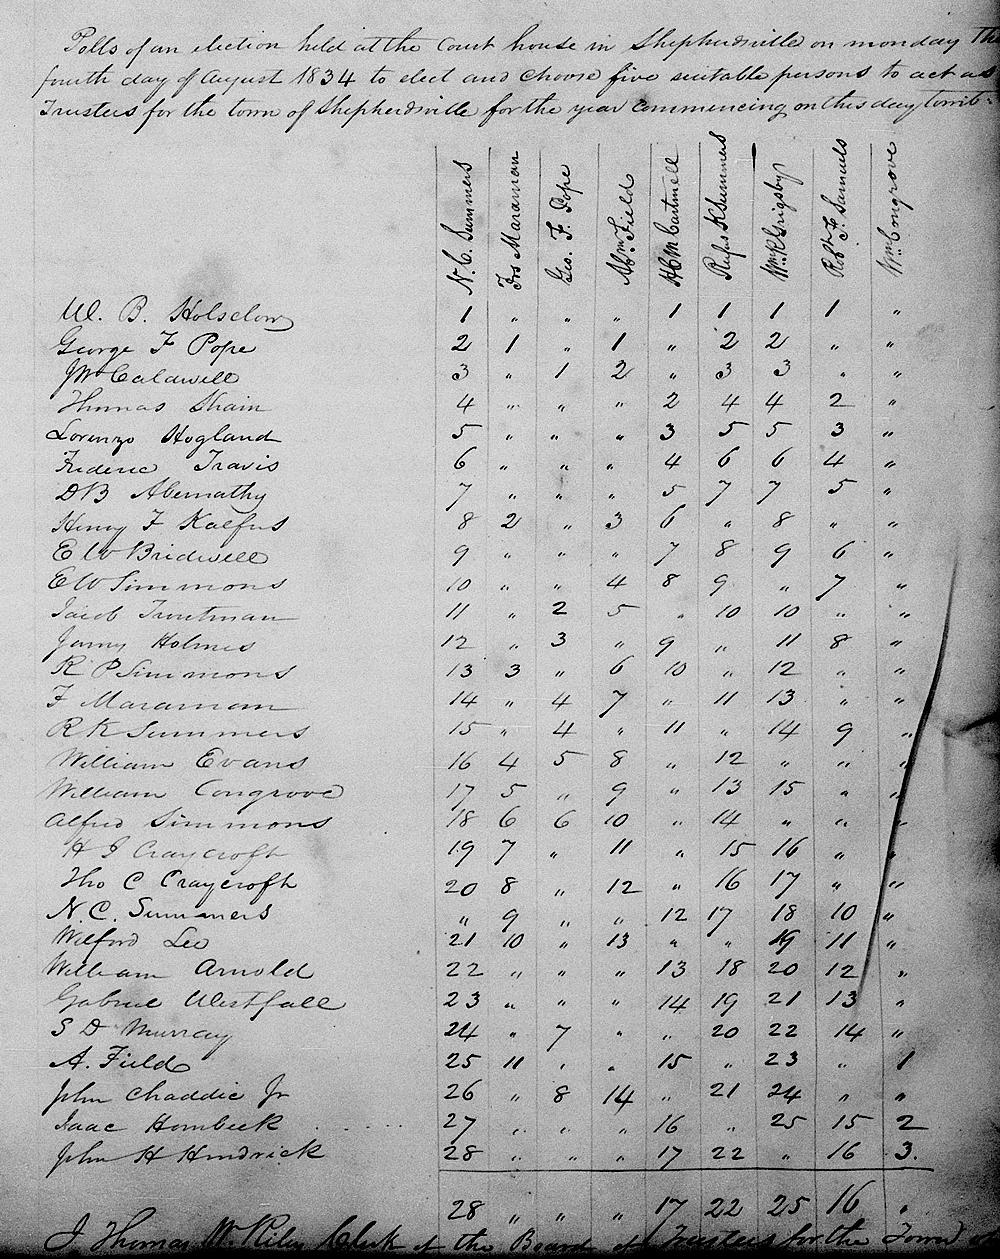 Polls of an election held at the Court house in Shepherdsville on monday the
fourth day of August 1834 to elect and choose five suitable persons to act as
Trustees for the town of Shepherdsville for the year commencing on this day towit:
N. C. Summers Frs Maraman Geo. F. Pope Abm Field H C M Cartmell Rufus K Summers Wm R Grigsby Robt F. Samuels Wm Congrove
W. B. Holsclow 1 " " " 1 1 1 1 "
George F Pope 2 1 " 1 " 2 2 " "
JW Caldwell 3 " 1 2 " 3 3 " "
Thomas Shain 4 " " " 2 4 4 2 "
Lorenzo Hogland 5 " " " 3 5 5 3 "
Frederic Travis 6 " " " 4 6 6 4 "
D B Abernathy 7 " " " 5 7 7 5 "
Henry F Kalfus 8 2 " 3 6 " 8 " "
E W Bridwell 9 " " " 7 8 9 6 "
E W Simmons 10 " " 4 8 9 " 7 "
Jacob Troutman 11 " 2 5 " 10 10 " "
James Holmes 12 " 3 " 9 " 11 8 "
R P Simmons 13 3 " 6 10 " 12 " "
F Maraman 14 " 4 7 " 11 13 " "
R K Summers 15 " 4 " 11 " 14 9 "
William Evans 16 4 5 8 " 12 " " "
William Congrove 17 5 " 9 " 13 15 " "
Alfred Simmons 18 6 6 10 " 14 " " "
H I Craycroft 19 7 " 11 " 15 16 " "
Tho C Craycroft 20 8 " 12 " 16 17 " "
N. C. Summers " 9 " " 12 17 18 10 "
Wilford Leo 21 10 " 13 " " 19 11 "
William Arnold 22 " " " 13 18 20 12 "
Gabriel Westfall 23 " " " 14 19 21 13 "
S D Murray 24 " 7 " " 20 22 14 "
A. Field 25 11 " " 15 " 23 " 1
John Chaddic Jr 26 " 8 14 " 21 24 " "
Isaac Hornbeek 27 " " " 16 " 25 15 2
John H Hendrick 28 " " " 17 22 " 16 3.
28 " " " 17 22 25 16 "
I Thomas W. Riley Clerk of the Board of Trustees for the Town of